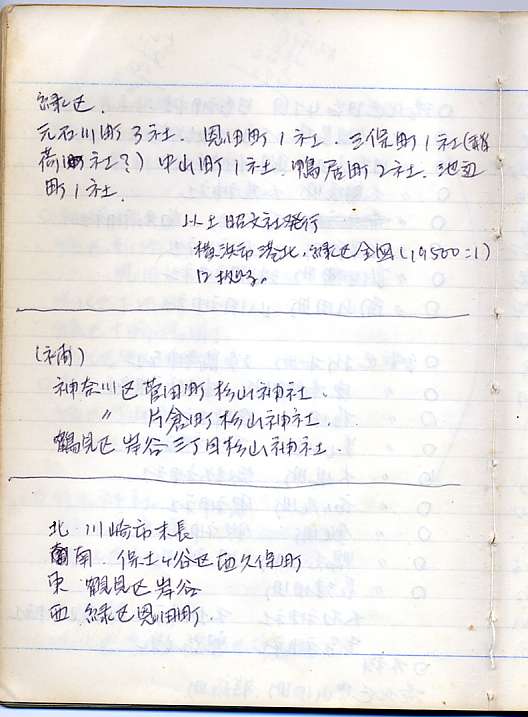 緑区.
元石川町3社. 恩田町1社. 三保町1社(稲
荷社?) 中山町1社. 鴨居町2社. 池辺
町1社.
以上昭文社発行
横浜市港北.緑区全図(19500=1)
に拠る。
(補)
神奈川区菅田町杉山神社.
〃 片倉町杉山神社.
鶴見区岸谷三丁目杉山神社.
北 川崎市末長
南. 保土ヶ谷区西久保町
東 鶴見区岸谷
西 緑区恩田町